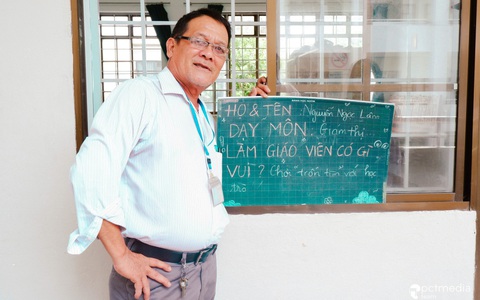 HỌ & TÊN : Nguyễn Ngọc Lâm
DẠY MÔN : Giám thị
LÀM GIÁO VIÊN CÓ GÌ
VUI ? Chơi trốn tìm với học
trò
pctmedia